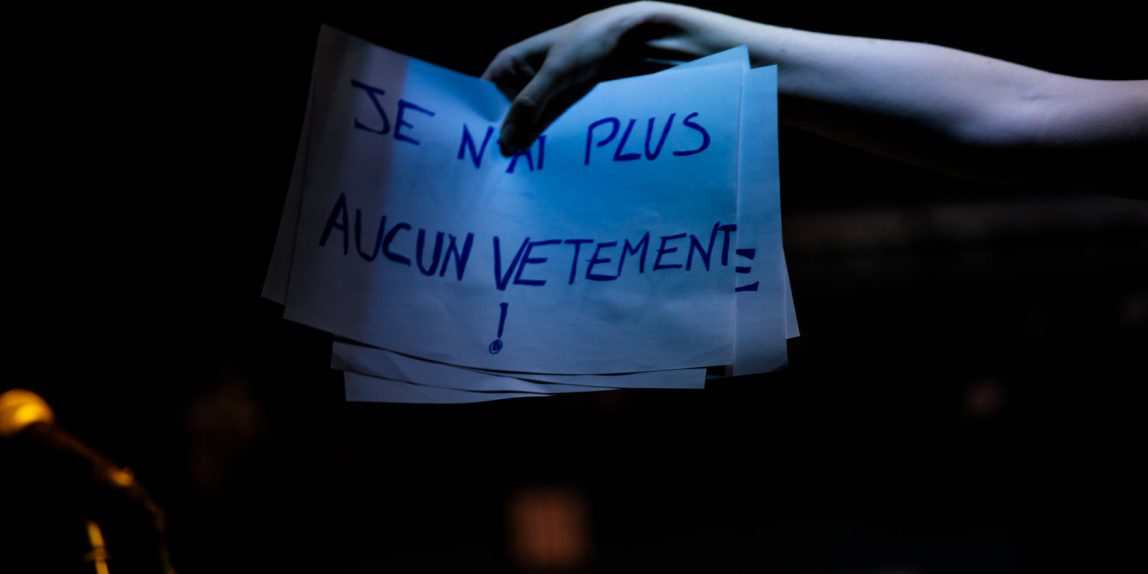 JE N'AI PLUS
AUCUN VETEMENT
!